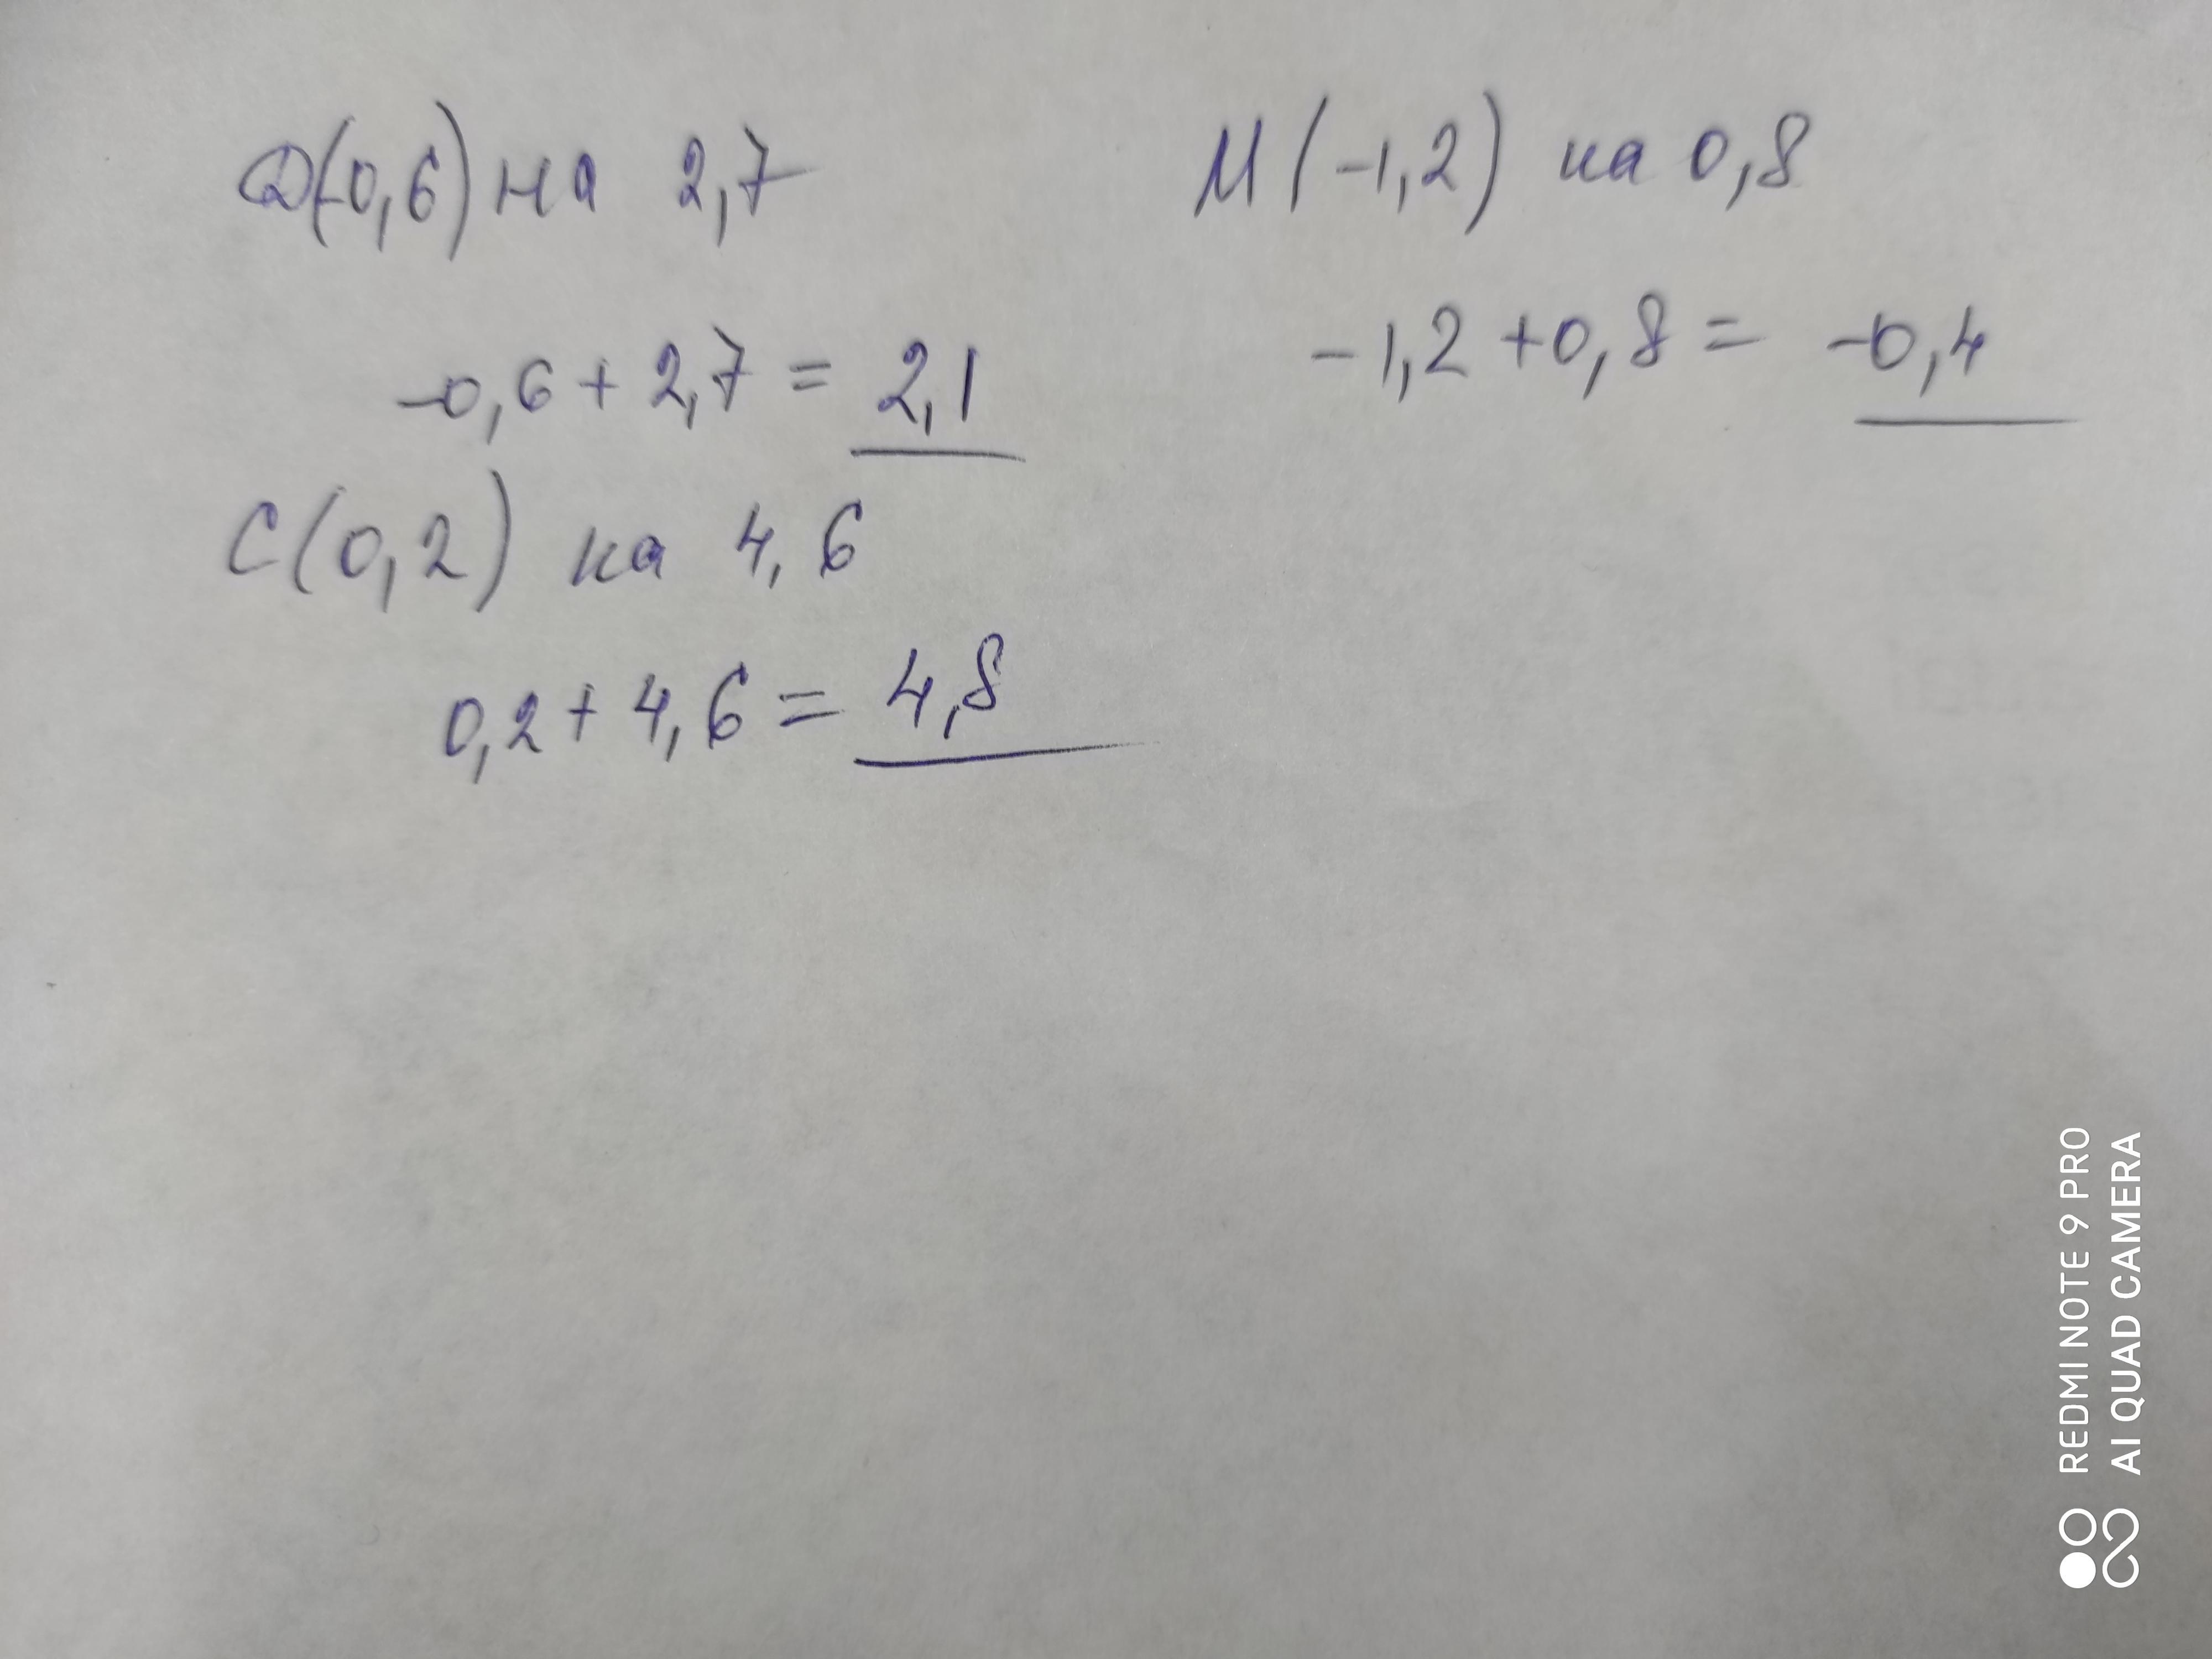 D(-0,6) на 2,7
-0,6 + 2,7 = 2,1
C(0,2) на 4,6
0,2 + 4,6 = 4,8
M(-1,2) на 0,8
-1,2 + 0,8 = -0,4
REDMI NOTE 9 PRO
AI QUAD CAMERA